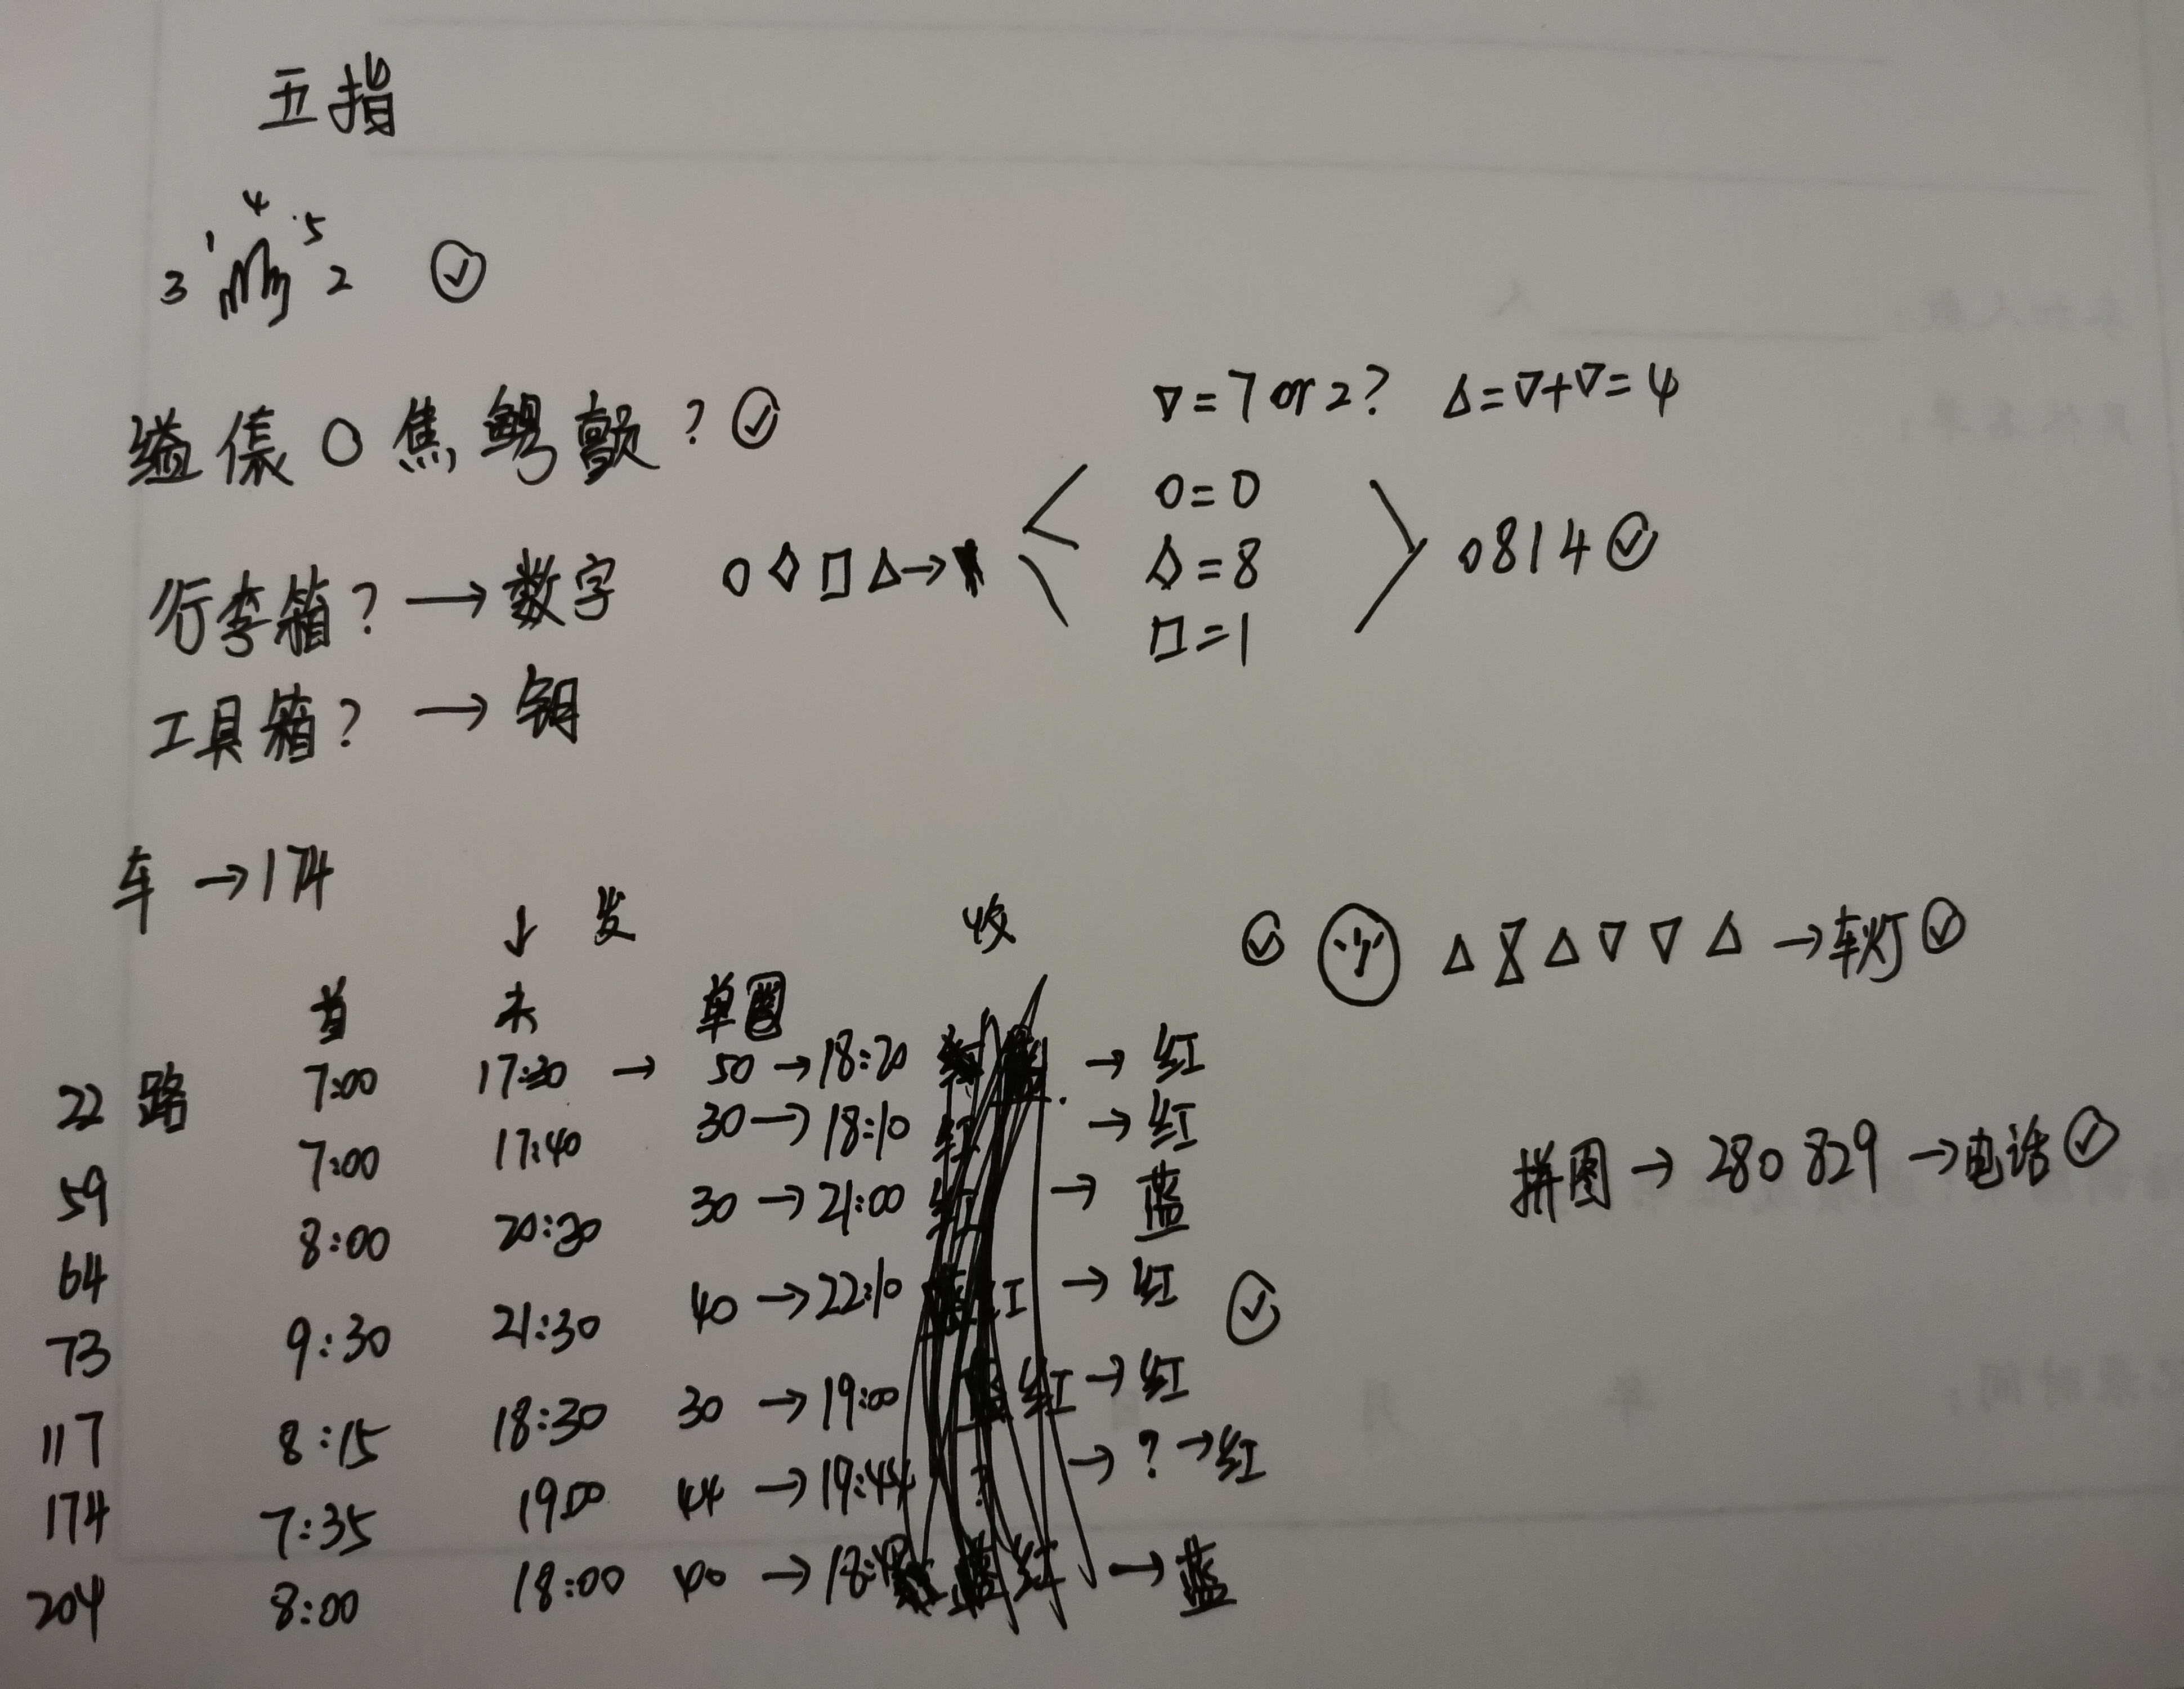 五指
4
1 5
3 2 ✓
缢 傢 O 焦 鹗 颤 ? ✓
▽=7 or 2? △=▽+▽=4
O=0
行李箱? → 数字 O ◇ □ △ → ◇=8 0814 ✓
□=1
工具箱? → 钥
车 → 174
↓ 发 收 ✓ △ ⧖ △ ▽ ▽ △ → 车灯 ✓
首 末 单圈
22 路 7:00 17:30 → 50 → 18:20 → 红
59 7:00 17:40 30 → 18:10 → 红
64 8:00 20:30 30 → 21:00 → 蓝
73 9:30 21:30 40 → 22:10 → 红 ✓
117 8:15 18:30 30 → 19:00 → 红
174 7:35 19:00 44 → 19:44 → ? → 红
204 8:00 18:00 40 → → 蓝
拼图 → 280 829 → 电话 ✓